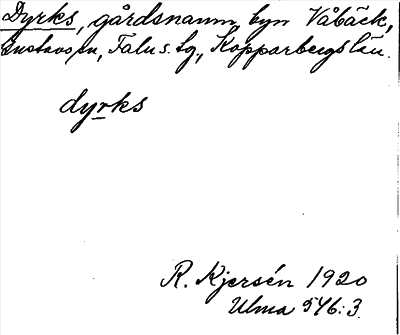 Dyrks, gårdsnamn, byn Våbäck,
Gustavs sn, Falu s. lg, Kopparbergs län.
dyrks
R. Kjersén 1920
Ulma 546:3.